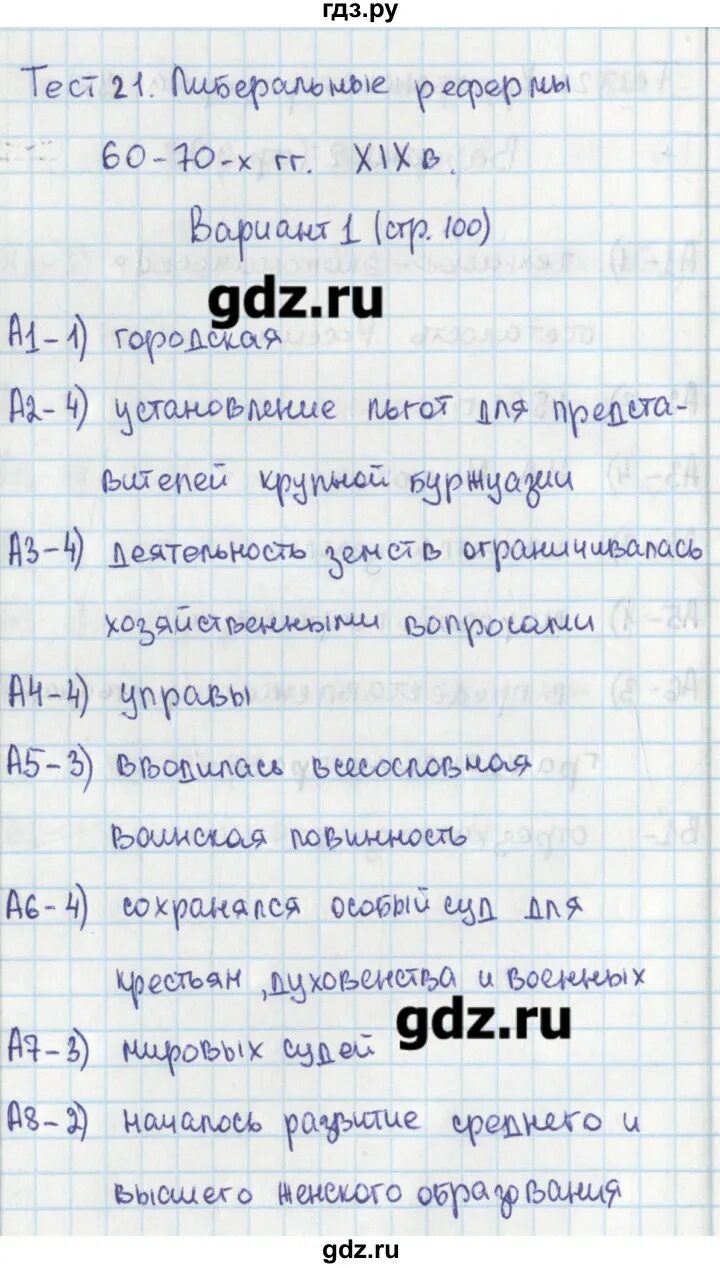 гдз.ру
Тест 21. Либеральные реформы
60-70-х гг. XIX в.
Вариант 1 (стр. 100)
gdz.ru
А1-1) городская
А2-4) установление льгот для предста-
вителей крупной буржуазии
А3-4) деятельность земств ограничивалась
хозяйственными вопросами
А4-4) управы
А5-3) вводилась всесословная
воинская повинность
А6-4) сохранялся особый суд для
крестьян, духовенства и военных
gdz.ru
А7-3) мировых судей
А8-2) началось развитие среднего и
высшего женского образования
gdz.ru